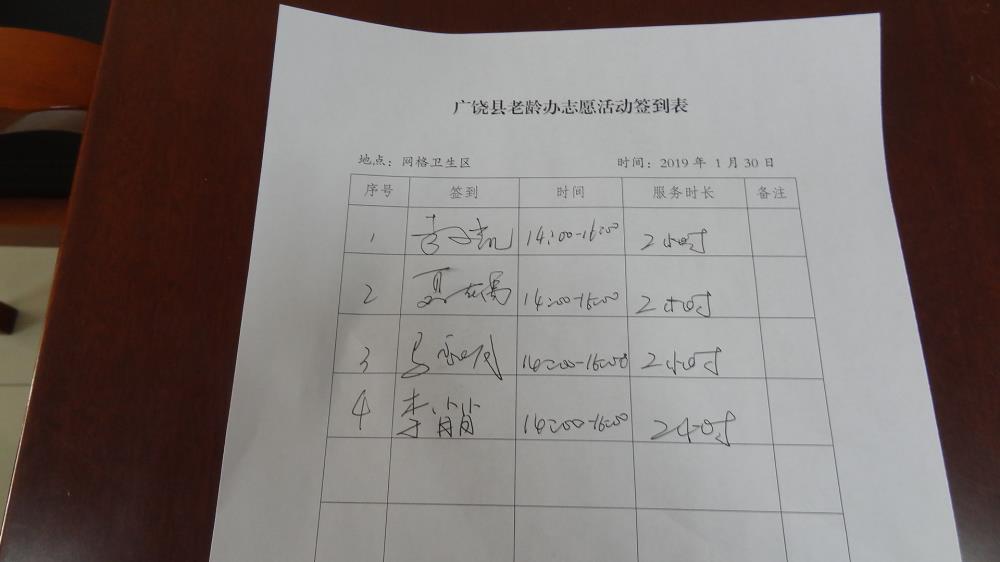 广饶县老龄办志愿活动签到表
地点：网格卫生区 时间：2019 年 1 月 30 日
序号 签到 时间 服务时长 备注
1 14:00-16:00 2小时
2 14:00-16:00 2小时
3 14:00-16:00 2小时
4 李肖肖 14:00-16:00 2小时